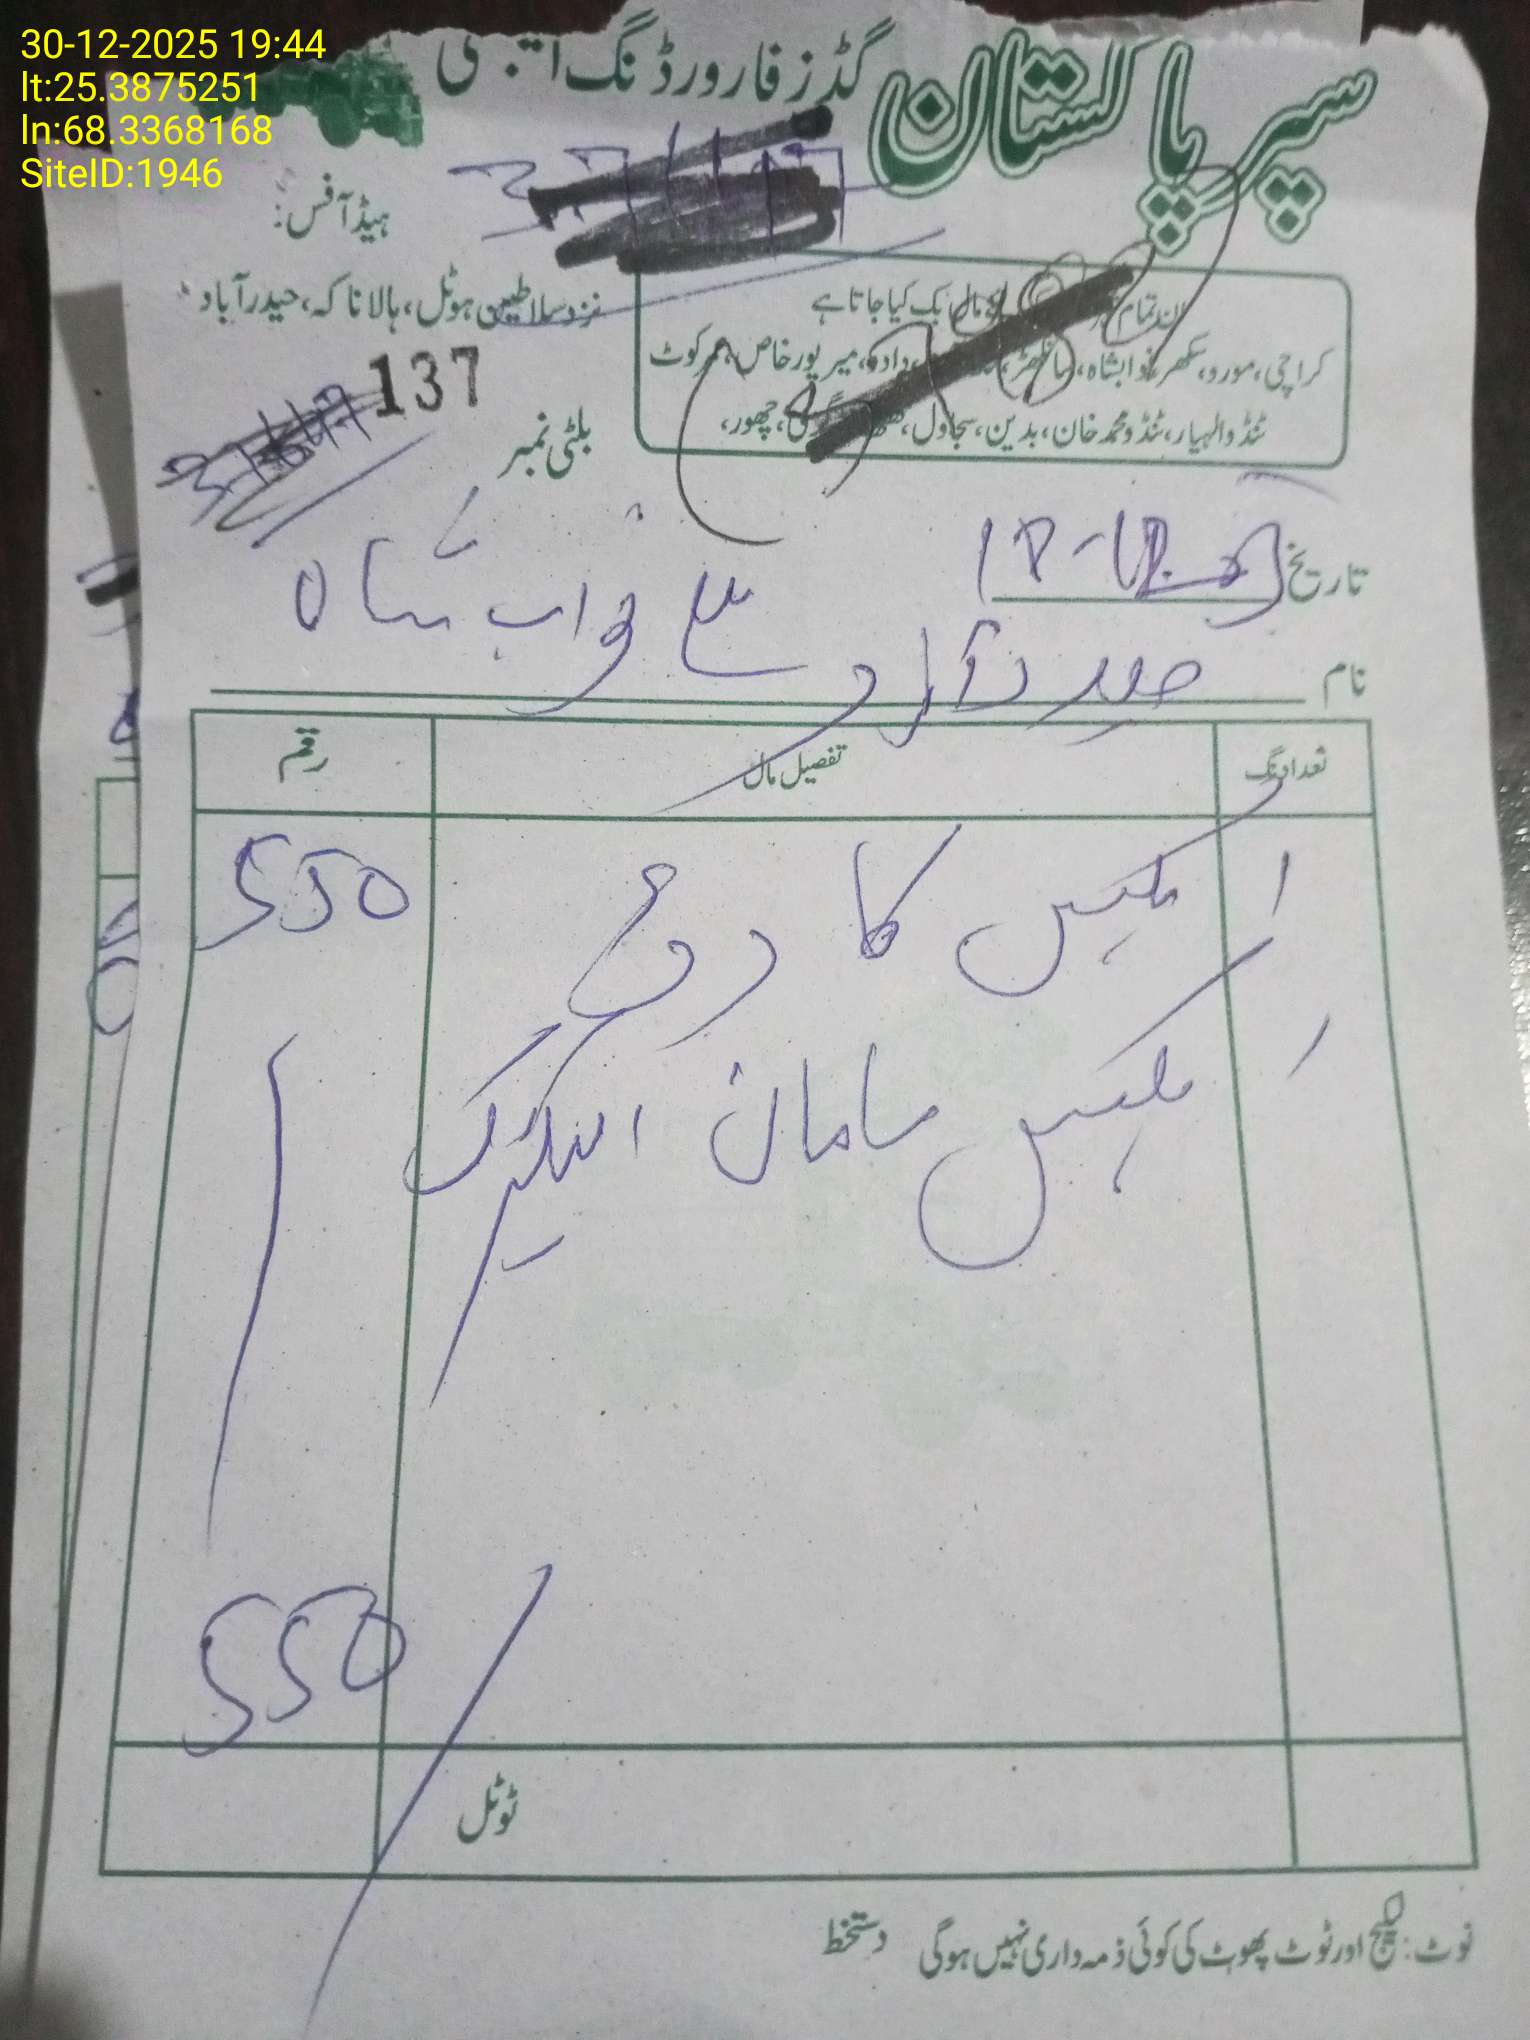 30-12-2025 19:44
lt:25.3875251
ln:68.3368168
SiteID:1946
سپر پاکستان گڈز فارورڈنگ ایجنسی
ہیڈ آفس:
نزد سلاطین ہوٹل، ہالا ناکہ، حیدرآباد
مال بک کیا جاتا ہے
کراچی، مورو، سکھر، نوابشاہ، سانگھڑ، دادو، میرپور خاص، عمرکوٹ
ٹنڈوالہیار، ٹنڈو محمد خان، بدین، سجاول، چھور،
بلٹی نمبر 137
تاریخ
نام حیدرآباد سے نواب شاہ
تعداد نگ تفصیل مال رقم
1 بکس کا 550
بکس سامان الیکٹرک
550
ٹوٹل
نوٹ: لیکج اور ٹوٹ پھوٹ کی کوئی ذمہ داری نہیں ہوگی دستخط